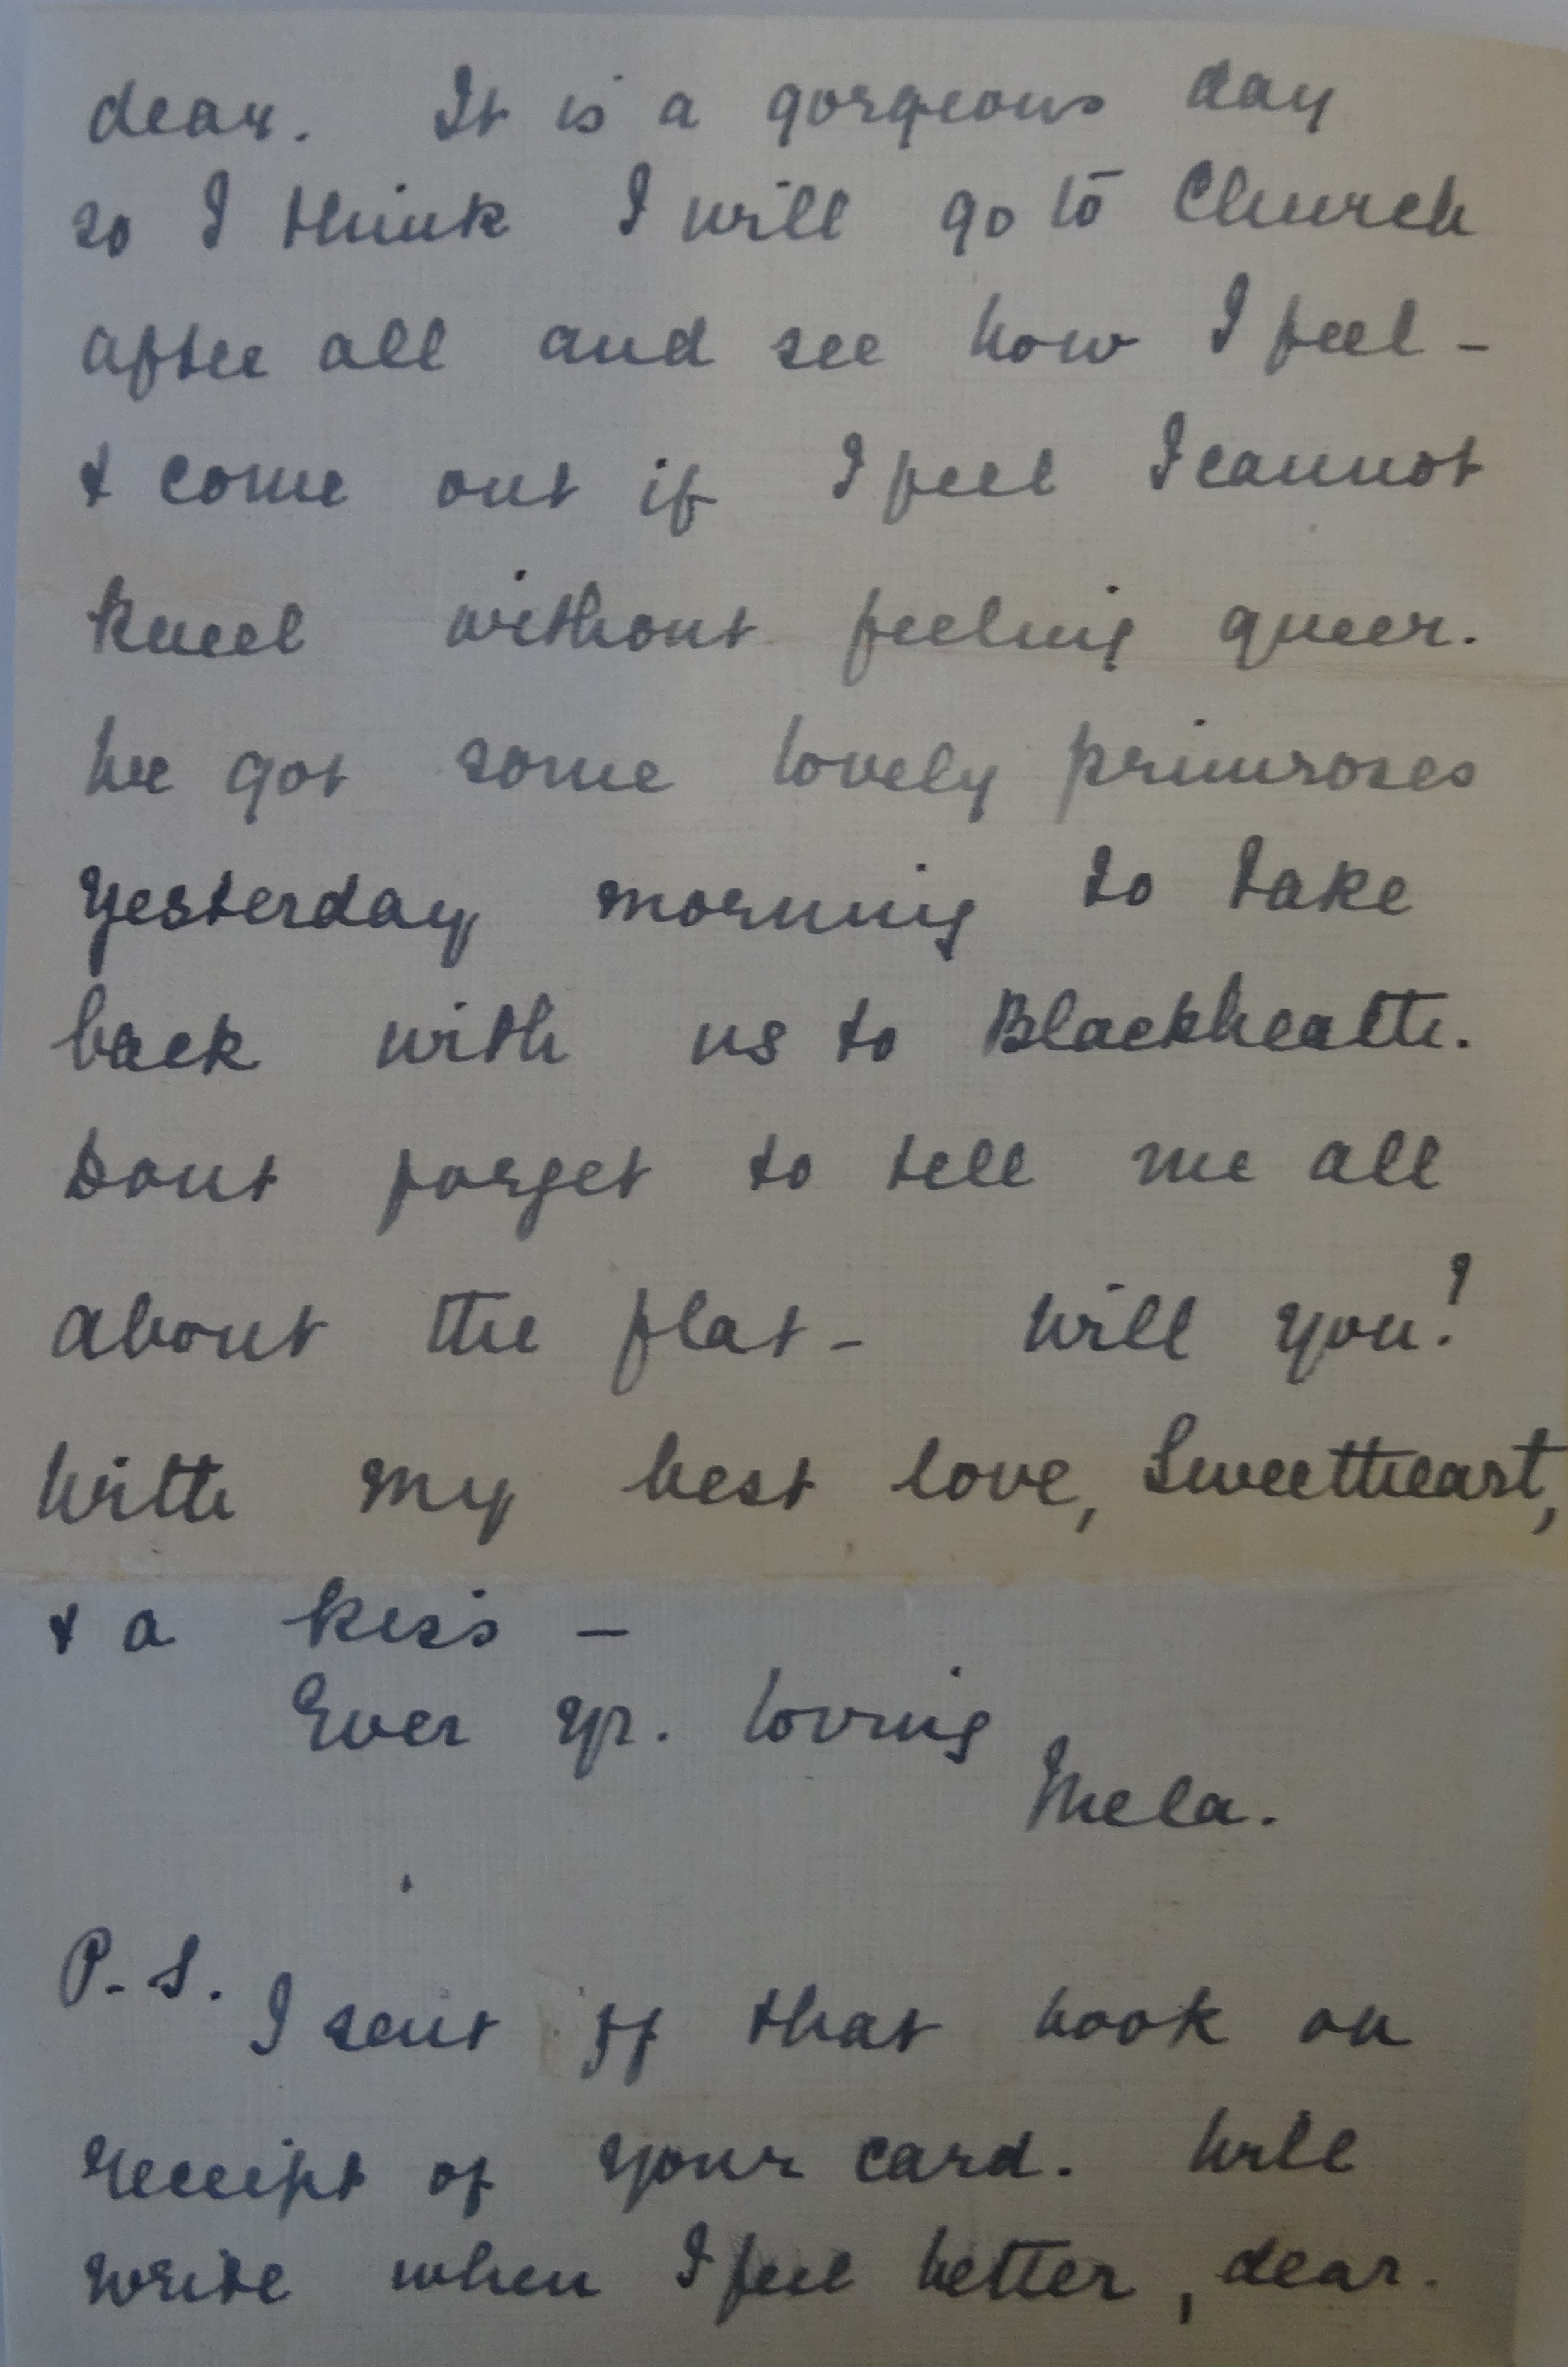 dear. It is a gorgeous day
so I think I will go to Church
after all and see how I feel -
& come out if I feel I cannot
kneel without feeling queer.
We got some lovely primroses
yesterday morning to take
back with us to Blackheath.
Dont forget to tell me all
about the flat - Will you?
With my best love, Sweetheart,
& a kiss -
Ever yr. loving
Mela.
P.S.
I sent off that book on
receipt of your card. Will
write when I feel better, dear.